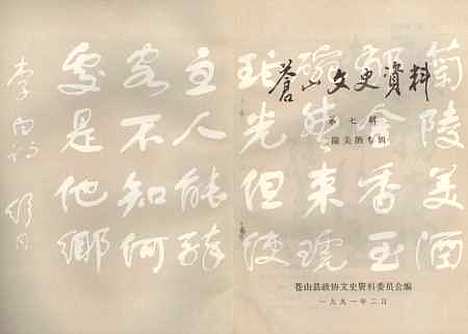 蒼山文史資料
第七辑
兰陵美酒专辑
苍山县政协文史资料委员会编
一九九一年二月
蘭陵美酒
鬱金香玉
碗盛来琥
珀光但使
主人能醉
客不知何
處是他鄉
李白詩
舒同